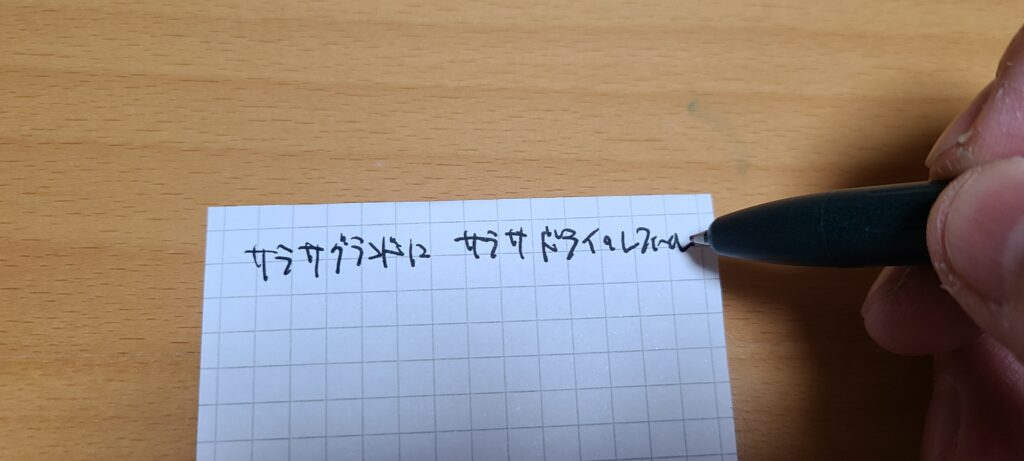 サラサグランドに サラサドライのレフィル